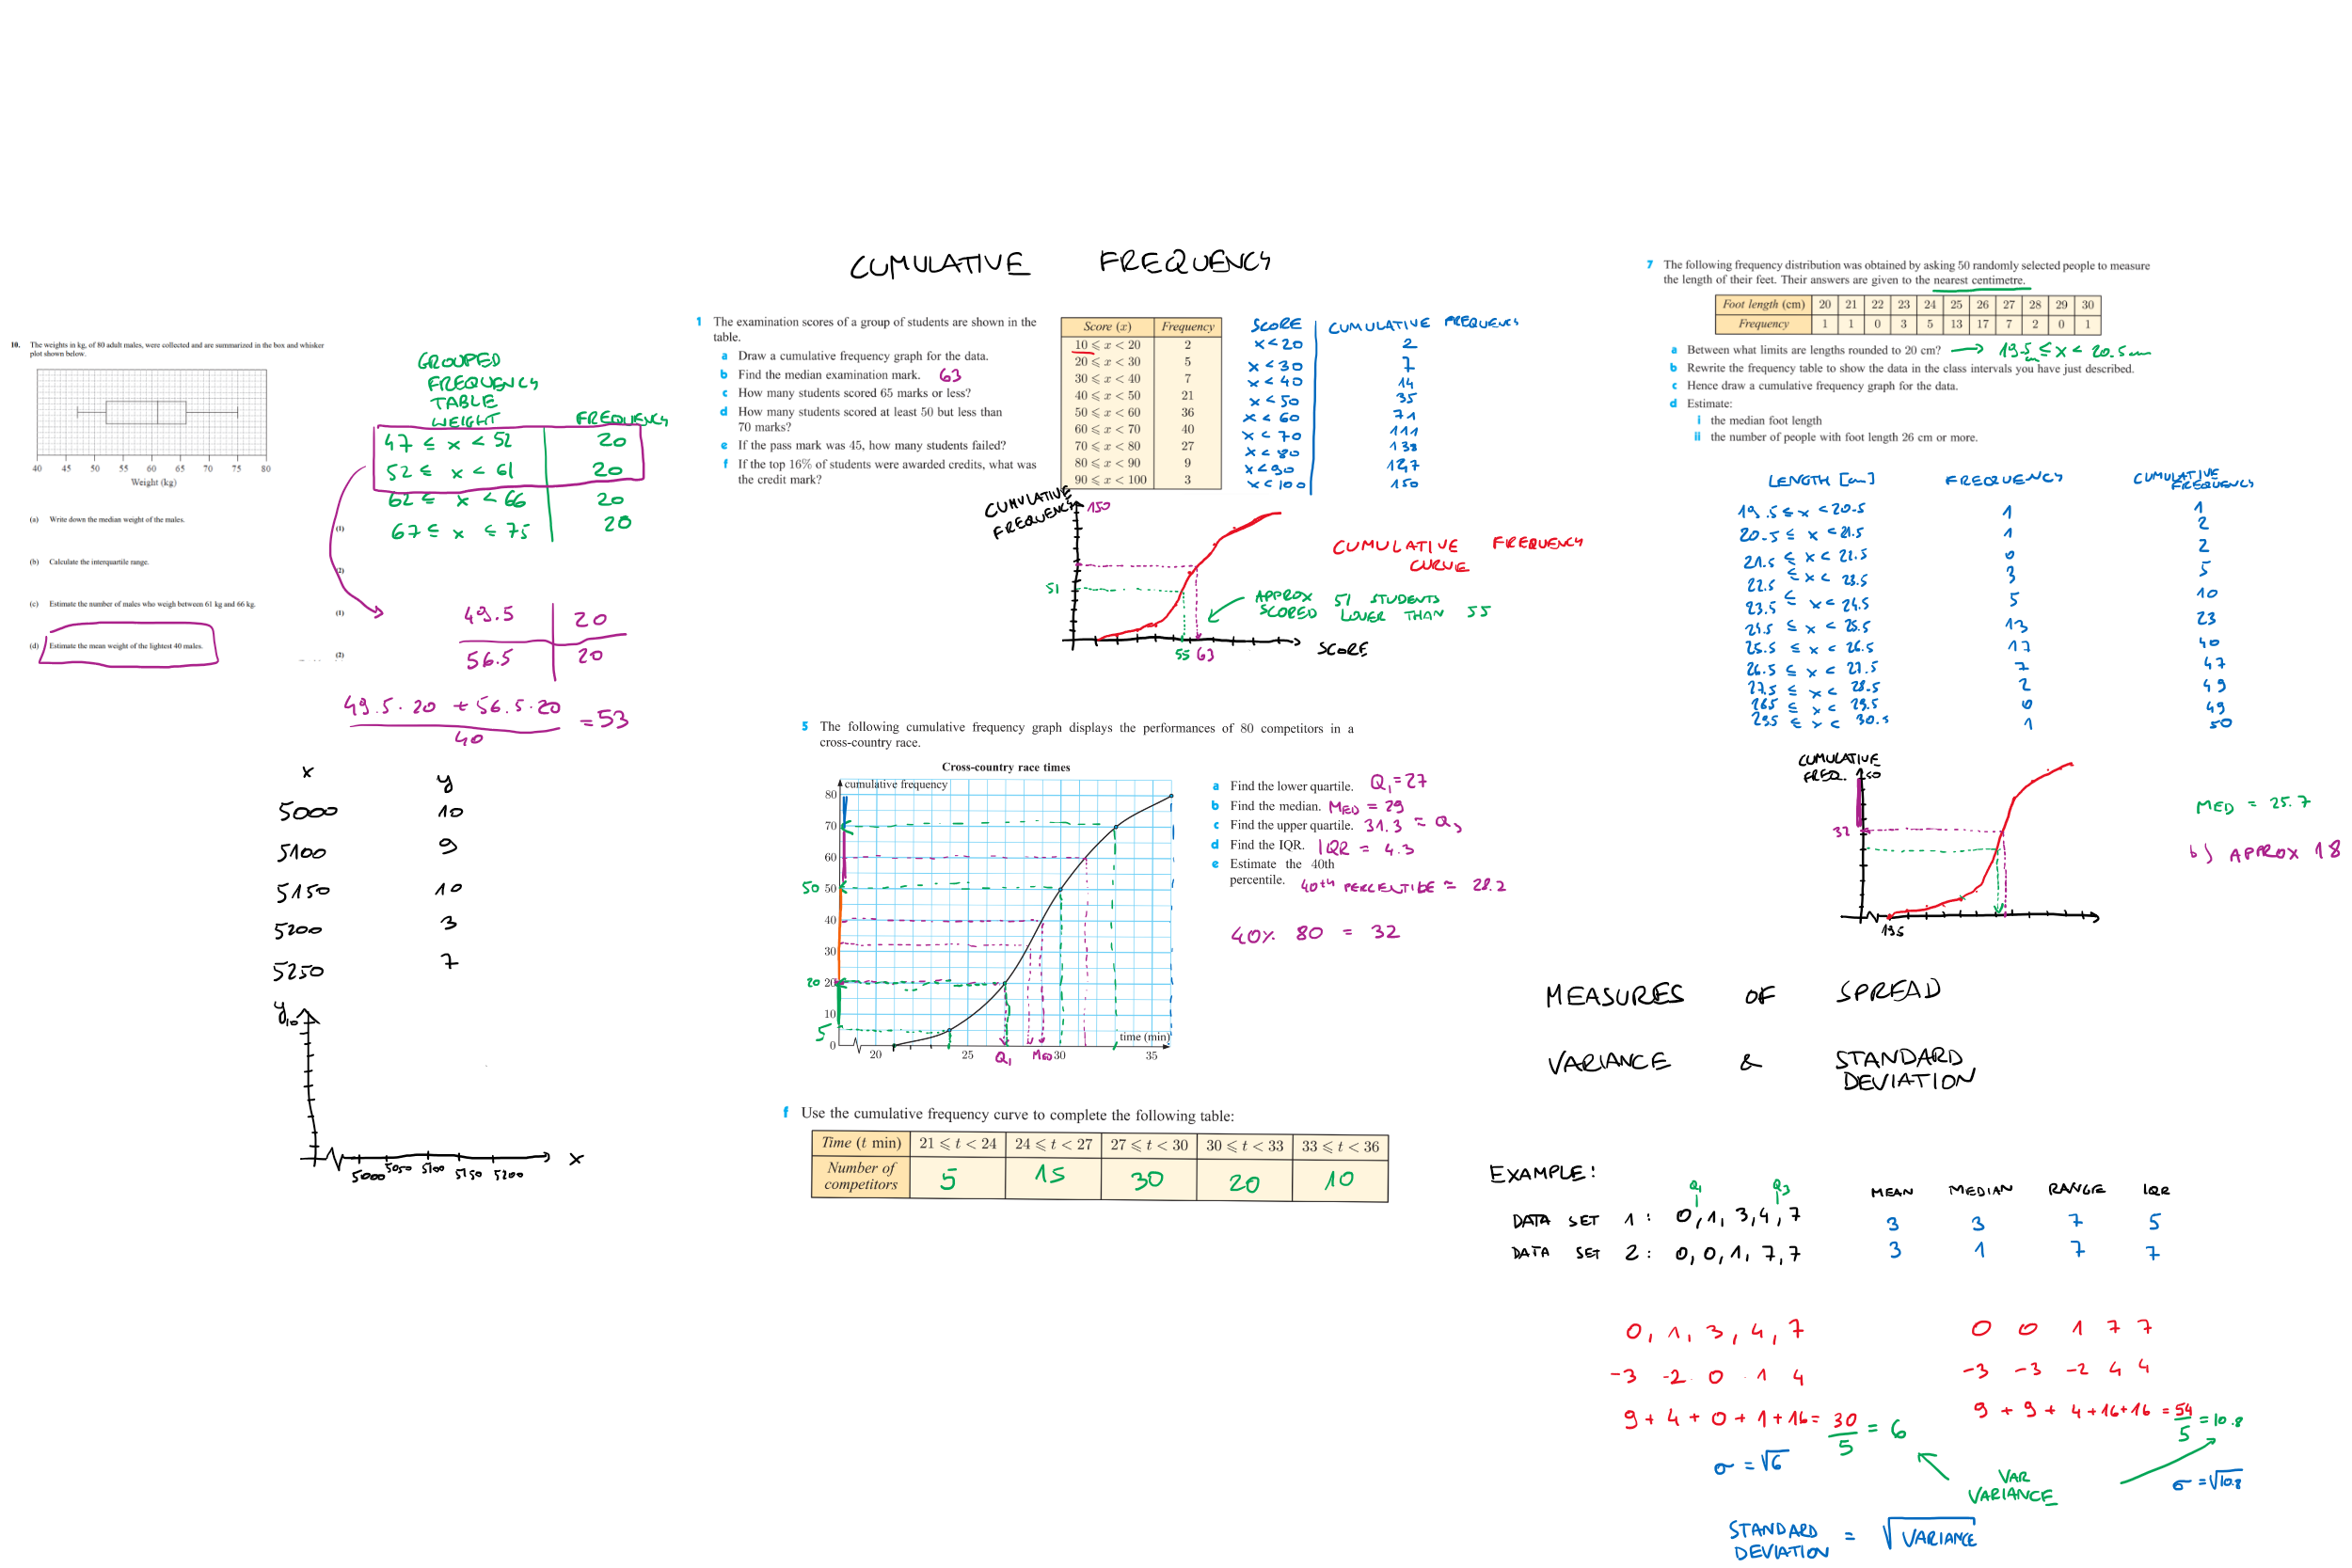 CUMULATIVE FREQUENCY
10. The weights in kg, of 80 adult males, were collected and are summarized in the box and whisker
plot shown below.
40 45 50 55 60 65 70 75 80
Weight (kg)
(a) Write down the median weight of the males.
(1)
(b) Calculate the interquartile range.
(2)
(c) Estimate the number of males who weigh between 61 kg and 66 kg.
(1)
(d) Estimate the mean weight of the lightest 40 males.
(2)
GROUPED
FREQUENCY
TABLE
WEIGHT FREQUENCY
47 ≤ x < 52 20
52 ≤ x < 61 20
62 ≤ x < 66 20
67 ≤ x ≤ 75 20
49.5 20
56.5 20
49.5 · 20 + 56.5 · 20 = 53
40
x y
5000 10
5100 9
5150 10
5200 3
5250 7
y
10
5000 5050 5100 5150 5200 x
1 The examination scores of a group of students are shown in the
table.
a Draw a cumulative frequency graph for the data.
b Find the median examination mark. 63
c How many students scored 65 marks or less?
d How many students scored at least 50 but less than
70 marks?
e If the pass mark was 45, how many students failed?
f If the top 16% of students were awarded credits, what was
the credit mark?
Score (x) Frequency
10 ⩽ x < 20 2
20 ⩽ x < 30 5
30 ⩽ x < 40 7
40 ⩽ x < 50 21
50 ⩽ x < 60 36
60 ⩽ x < 70 40
70 ⩽ x < 80 27
80 ⩽ x < 90 9
90 ⩽ x < 100 3
SCORE CUMULATIVE FREQUENCY
x < 20 2
x < 30 7
x < 40 14
x < 50 35
x < 60 71
x < 70 111
x < 80 138
x < 90 147
x < 100 150
CUMULATIVE
FREQUENCY
150
51
55 63
SCORE
CUMULATIVE FREQUENCY
CURVE
APPROX 51 STUDENTS
SCORED LOWER THAN 55
5 The following cumulative frequency graph displays the performances of 80 competitors in a
cross-country race.
Cross-country race times
cumulative frequency
80
70
60
50 50
40
30
20 20
10
5
0
20 25 30 35
time (min)
Q1 MED
a Find the lower quartile. Q1 = 27
b Find the median. MED = 29
c Find the upper quartile. 31.3 = Q3
d Find the IQR. IQR = 4.3
e Estimate the 40th
percentile. 40th PERCENTILE = 28.2
40% 80 = 32
f Use the cumulative frequency curve to complete the following table:
Time (t min) 21 ⩽ t < 24 24 ⩽ t < 27 27 ⩽ t < 30 30 ⩽ t < 33 33 ⩽ t < 36
Number of
competitors 5 15 30 20 10
7 The following frequency distribution was obtained by asking 50 randomly selected people to measure
the length of their feet. Their answers are given to the nearest centimetre.
Foot length (cm) 20 21 22 23 24 25 26 27 28 29 30
Frequency 1 1 0 3 5 13 17 7 2 0 1
a Between what limits are lengths rounded to 20 cm? → 19.5 cm ≤ x < 20.5 cm
b Rewrite the frequency table to show the data in the class intervals you have just described.
c Hence draw a cumulative frequency graph for the data.
d Estimate:
i the median foot length
ii the number of people with foot length 26 cm or more.
LENGTH [cm] FREQUENCY CUMULATIVE FREQUENCY
19.5 ≤ x < 20.5 1 1
20.5 ≤ x < 21.5 1 2
21.5 ≤ x < 22.5 0 2
22.5 ≤ x < 23.5 3 5
23.5 ≤ x < 24.5 5 10
24.5 ≤ x < 25.5 13 23
25.5 ≤ x < 26.5 17 40
26.5 ≤ x < 27.5 7 47
27.5 ≤ x < 28.5 2 49
28.5 ≤ x < 29.5 0 49
29.5 ≤ x < 30.5 1 50
CUMULATIVE
FREQ. 50
32
19.5
MED = 25.7
b) APPROX 18
MEASURES OF SPREAD
VARIANCE & STANDARD
DEVIATION
EXAMPLE:
Q1 Q3 MEAN MEDIAN RANGE IQR
DATA SET 1: 0, 1, 3, 4, 7 3 3 7 5
DATA SET 2: 0, 0, 1, 7, 7 3 1 7 7
0, 1, 3, 4, 7
-3 -2 0 1 4
9 + 4 + 0 + 1 + 16 = 30
5
= 6
σ = √6
0 0 1 7 7
-3 -3 -2 4 4
9 + 9 + 4 + 16 + 16 = 54
5
= 10.8
σ = √10.8
VAR
VARIANCE
STANDARD
DEVIATION = √VARIANCE